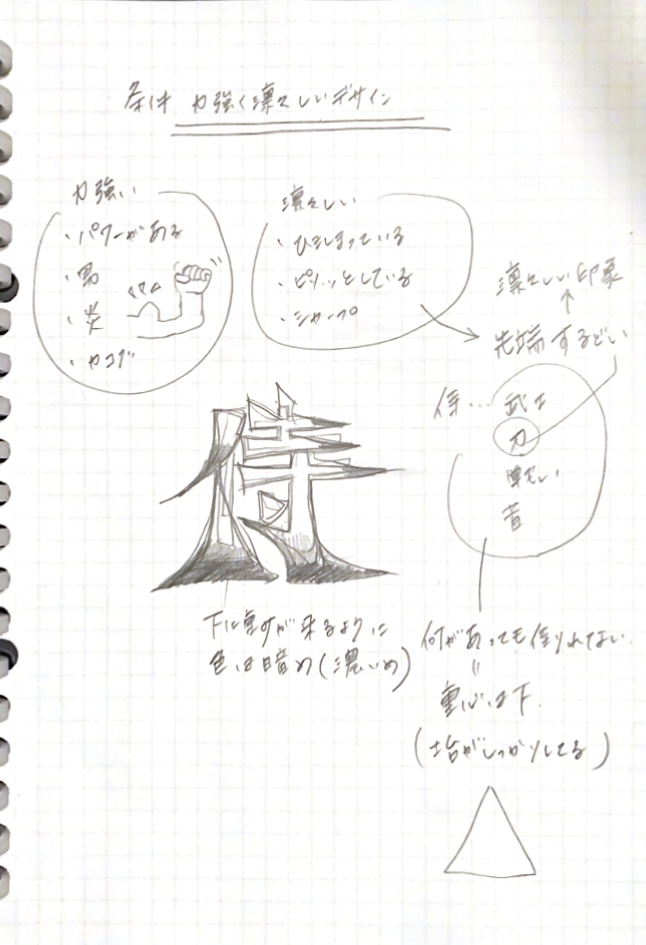 条件 力強く凛々しいデザイン
力強い
・パワーがある
・男
・炎
・カコブ
凛々しい
・ひきしまっている
・ピリッとしている
・シャープ
凛々しい印象
↑
先端するどい
侍… 武士
刀
昔
侍
下に重すが来るように
色は暗め(濃いめ)
何があっても倒れない
〃
重心は下.
(土台がしっかりしてる)